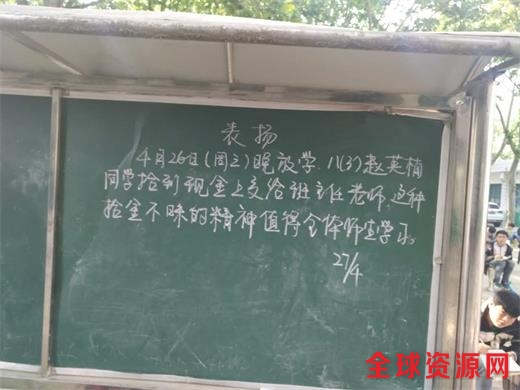 表扬
4月26日(周三)晚放学,八(3)赵英楠
同学拾到现金上交给班主任老师,这种
拾金不昧的精神值得全体师生学习。
27/4
全球资源网